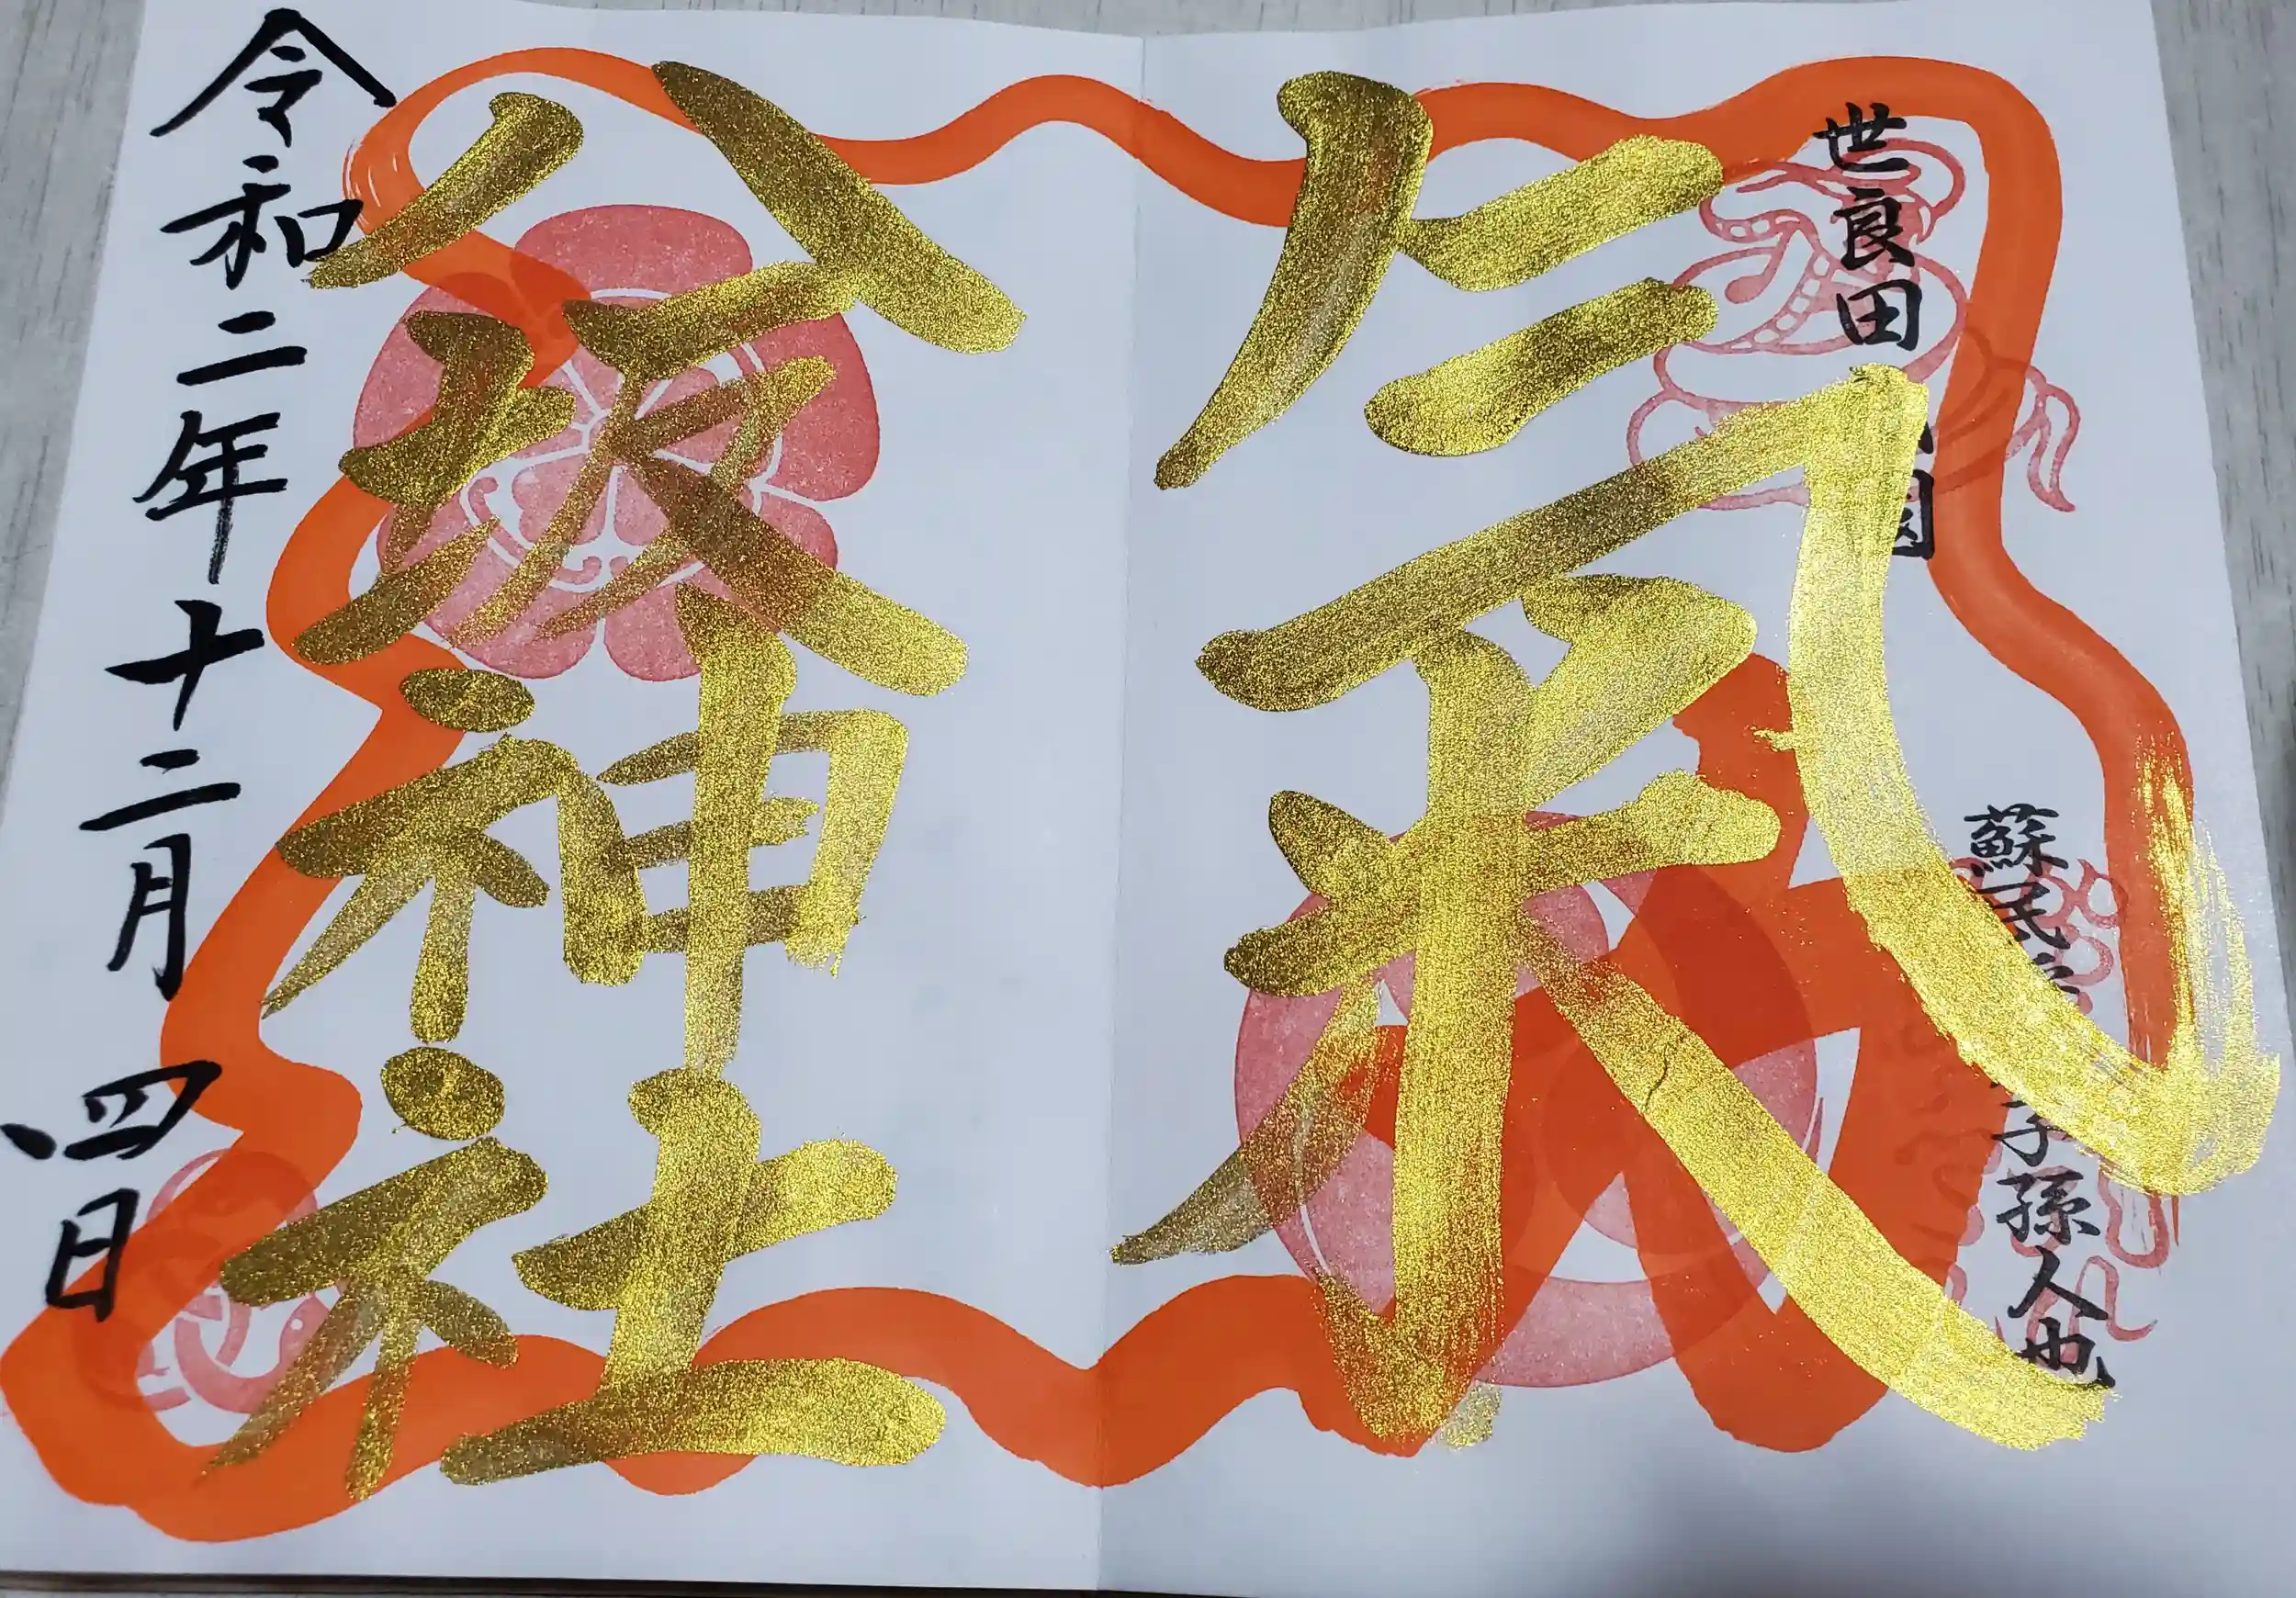 世良田
氣
蘇民
子孫人也
八坂神社
令和二年十二月四日